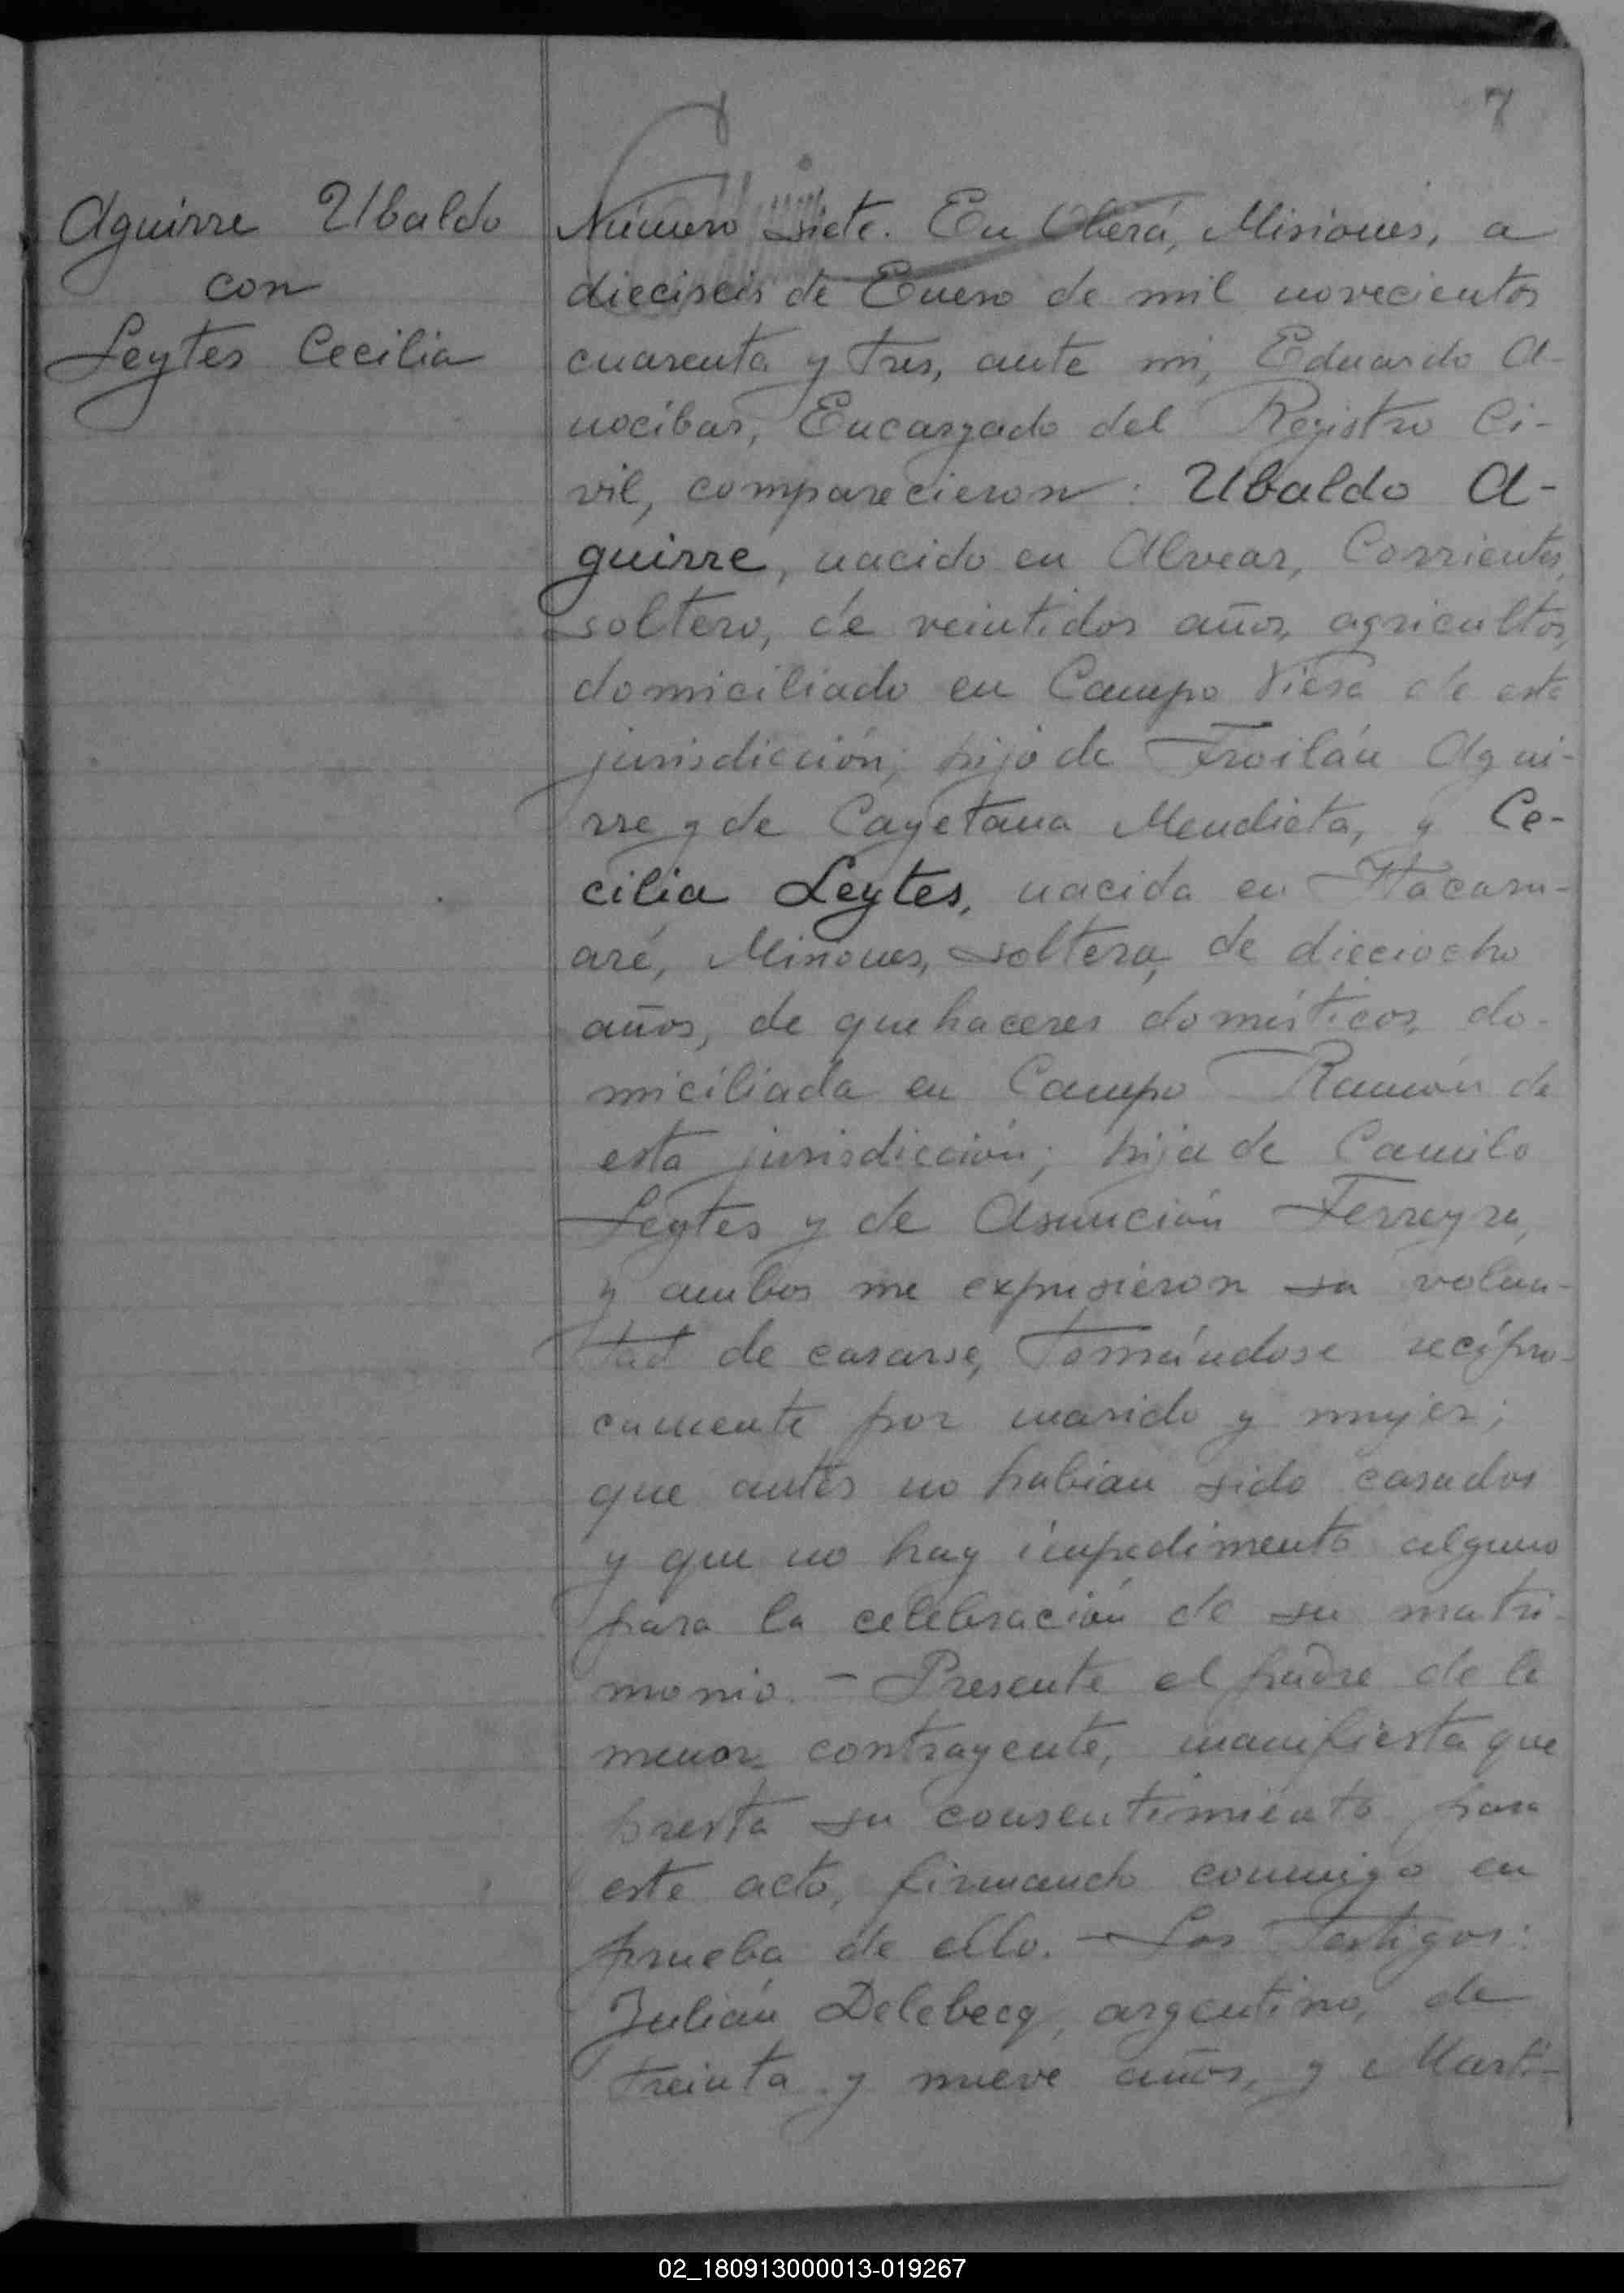 7
Aguirre Ubaldo
con
Leytes Cecilia
Número siete. En Oberá, Misiones, a
dieciseis de Enero de mil novecientos
cuarenta y tres, ante mi, Eduardo A-
nocíbar, Encargado del Registro Ci-
vil, comparecieron: Ubaldo A-
guirre, nacido en Alvear, Corrientes,
soltero, de veintidos años, agricultor,
domiciliado en Campo Viera de esta
jurisdicción; hijo de Froilán Agui-
rre y de Cayetana Mendieta, y Ce-
cilia Leytes, nacida en Itacaru-
aré, Misiones, soltera, de dieciocho
años, de quehaceres domésticos, do-
miciliada en Campo Ramón de
esta jurisdicción; hija de Camilo
Leytes y de Asunción Ferreyra,
y ambos me expusieron su volun-
tad de casarse, tomándose recípro-
camente por marido y mujer;
que antes no habian sido casados
y que no hay impedimento alguno
para la celebración de su matri-
monio. - Presente el padre de la
menor contrayente, manifiesta que
presta su consentimiento para
este acto, firmando conmigo en
prueba de ello. - Los testigos:
Julián Delebecq, argentino, de
treinta y nueve años, y Marti-
02_180913000013-019267